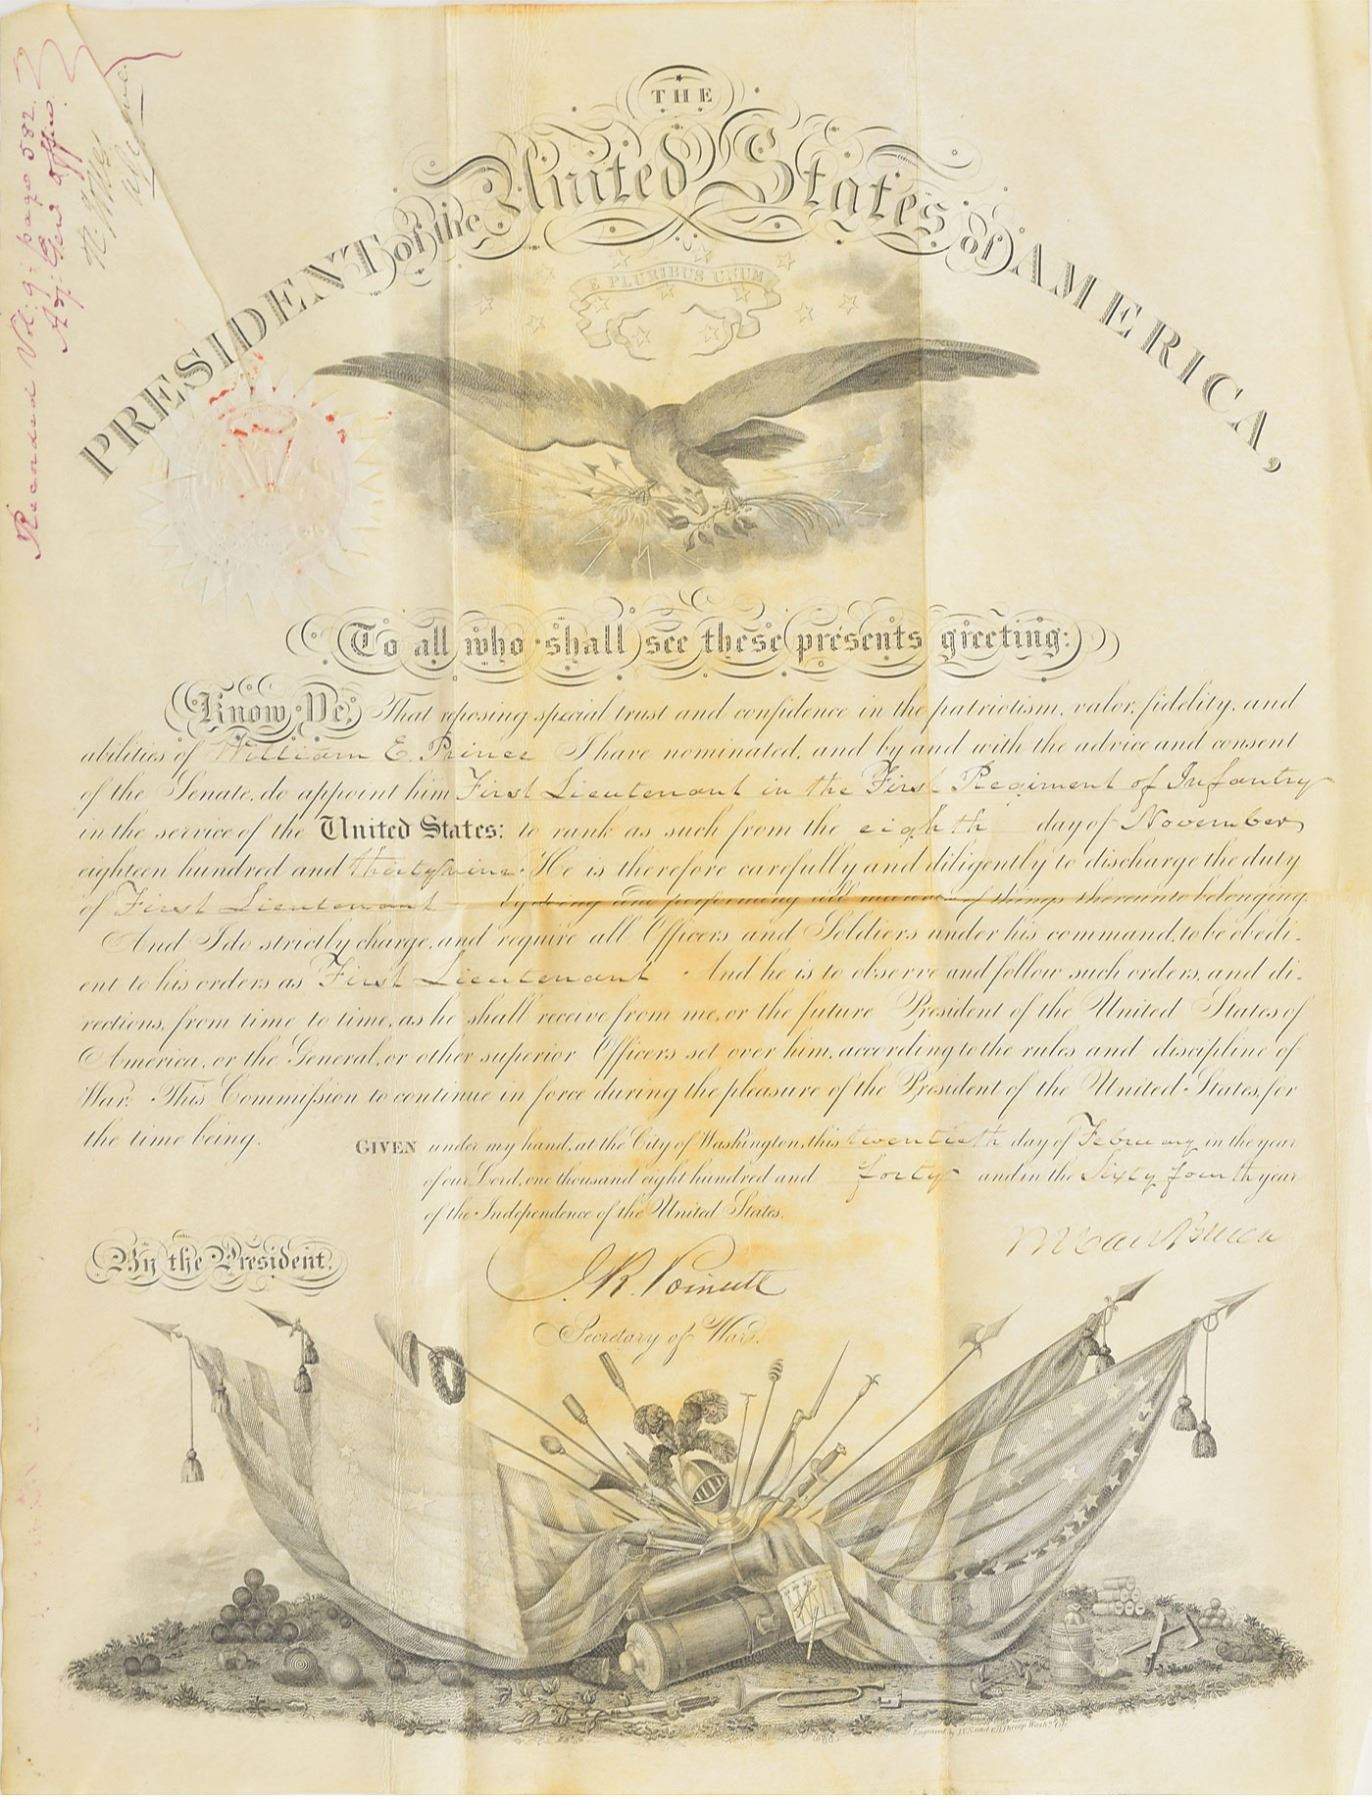 THE
PRESIDENT of the United States of AMERICA,
E PLURIBUS UNUM
Recorded Vol: 9: page 582.
Adj. Gen's Office.
To all who shall see these presents greeting:
Know Ye, That reposing special trust and confidence in the patriotism, valor, fidelity, and
abilities of William E. Prince I have nominated, and by and with the advice and consent
of the Senate, do appoint him First Lieutenant in the First Regiment of Infantry
in the service of the United States: to rank as such from the eighth day of November
eighteen hundred and thirtynine. He is therefore carefully and diligently to discharge the duty
of First Lieutenant by doing and performing all manner of things thereunto belonging.
And I do strictly charge, and require all Officers and Soldiers under his command, to be obedi-
ent to his orders as First Lieutenant. And he is to observe and follow such orders, and di-
rections, from time to time, as he shall receive from me, or the future President of the United States of
America, or the General, or other superior Officers set over him, according to the rules and discipline of
War. This Commission to continue in force during the pleasure of the President of the United States, for
the time being.
GIVEN under my hand, at the City of Washington, this twentieth day of February in the year
of our Lord, one thousand eight hundred and forty and in the Sixty fourth year
of the Independence of the United States.
M Van Buren
By the President.
J. R. Poinsett
Secretary of War.